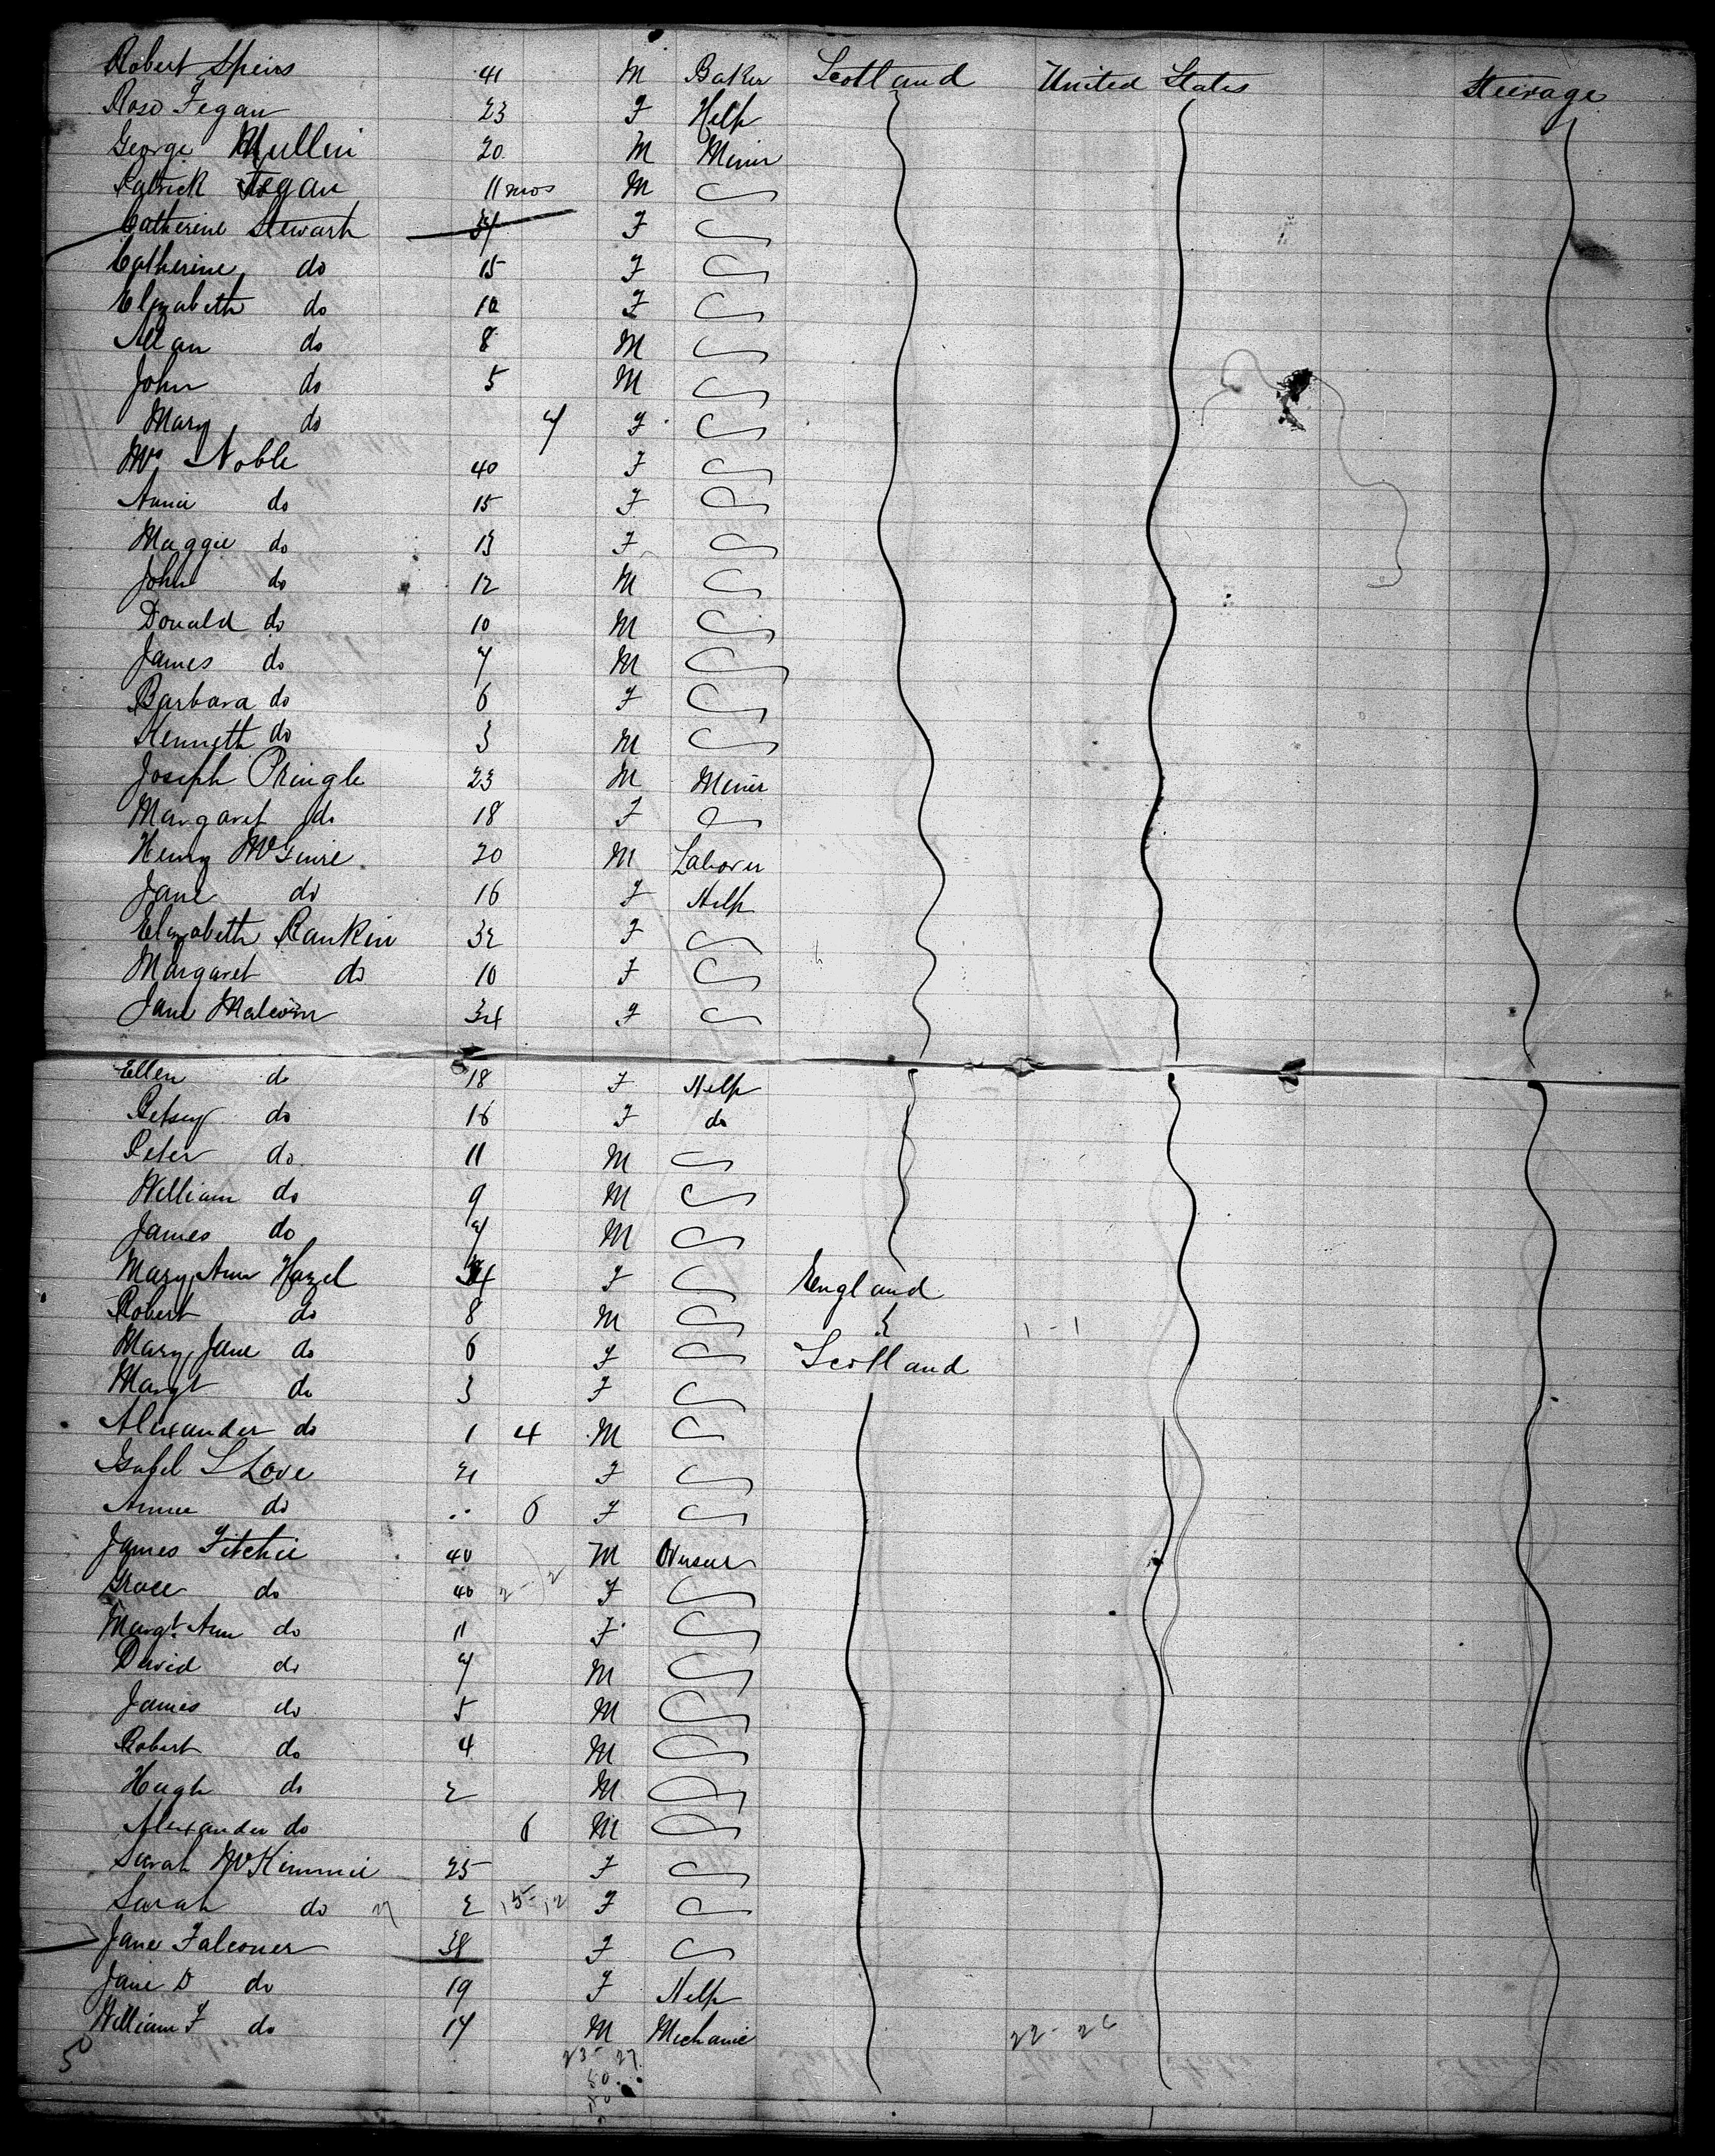 Robert Speirs 41 M Baker Scotland United States Steerage
Rose Fegan 23 F Help
George Mullin 20 M Miner
Patrick Fegan 11 mos M
Catherine Stewart 37 F
Catherine do 15 F
Elizabeth do 10 F
Allan do 8 M
John do 5 M
Mary do 7 F
Mrs Noble 40 F
Annie do 15 F
Maggie do 13 F
John do 12 M
Donald do 10 M
James do 7 M
Barbara do 6 F
Kenneth do 3 M
Joseph Pringle 23 M Miner
Margaret do 18 F
Henry McGuire 20 M Laborer
Jane do 16 F Help
Elizabeth Rankin 32 F
Margaret do 10 F
Jane Malcolm 34 F
Ellen do 18 F Help
Betsey do 16 F do
Peter do 11 M
William do 9 M
James do 7 M
Mary Ann Hazel F England
Robert do 8 M
Mary Jane do 6 F Scotland
Margt do 3 F
Alexander do 1 4 M
Isabel S Love 21 F
Annie do 6 F
James Fitchie 40 M
Grace do 40 2-2 F
Margt Ann do 11 F
David do 7 M
James do 5 M
Robert do 4 M
Hugh do 2 M
Alexander do 6 M
Sarah McKimmie 25 F
Sarah do 2 15-12 F
Jane Falconer 38 F
Jane D do 19 F Help
William F do 17 M Mechanic
5 23-27